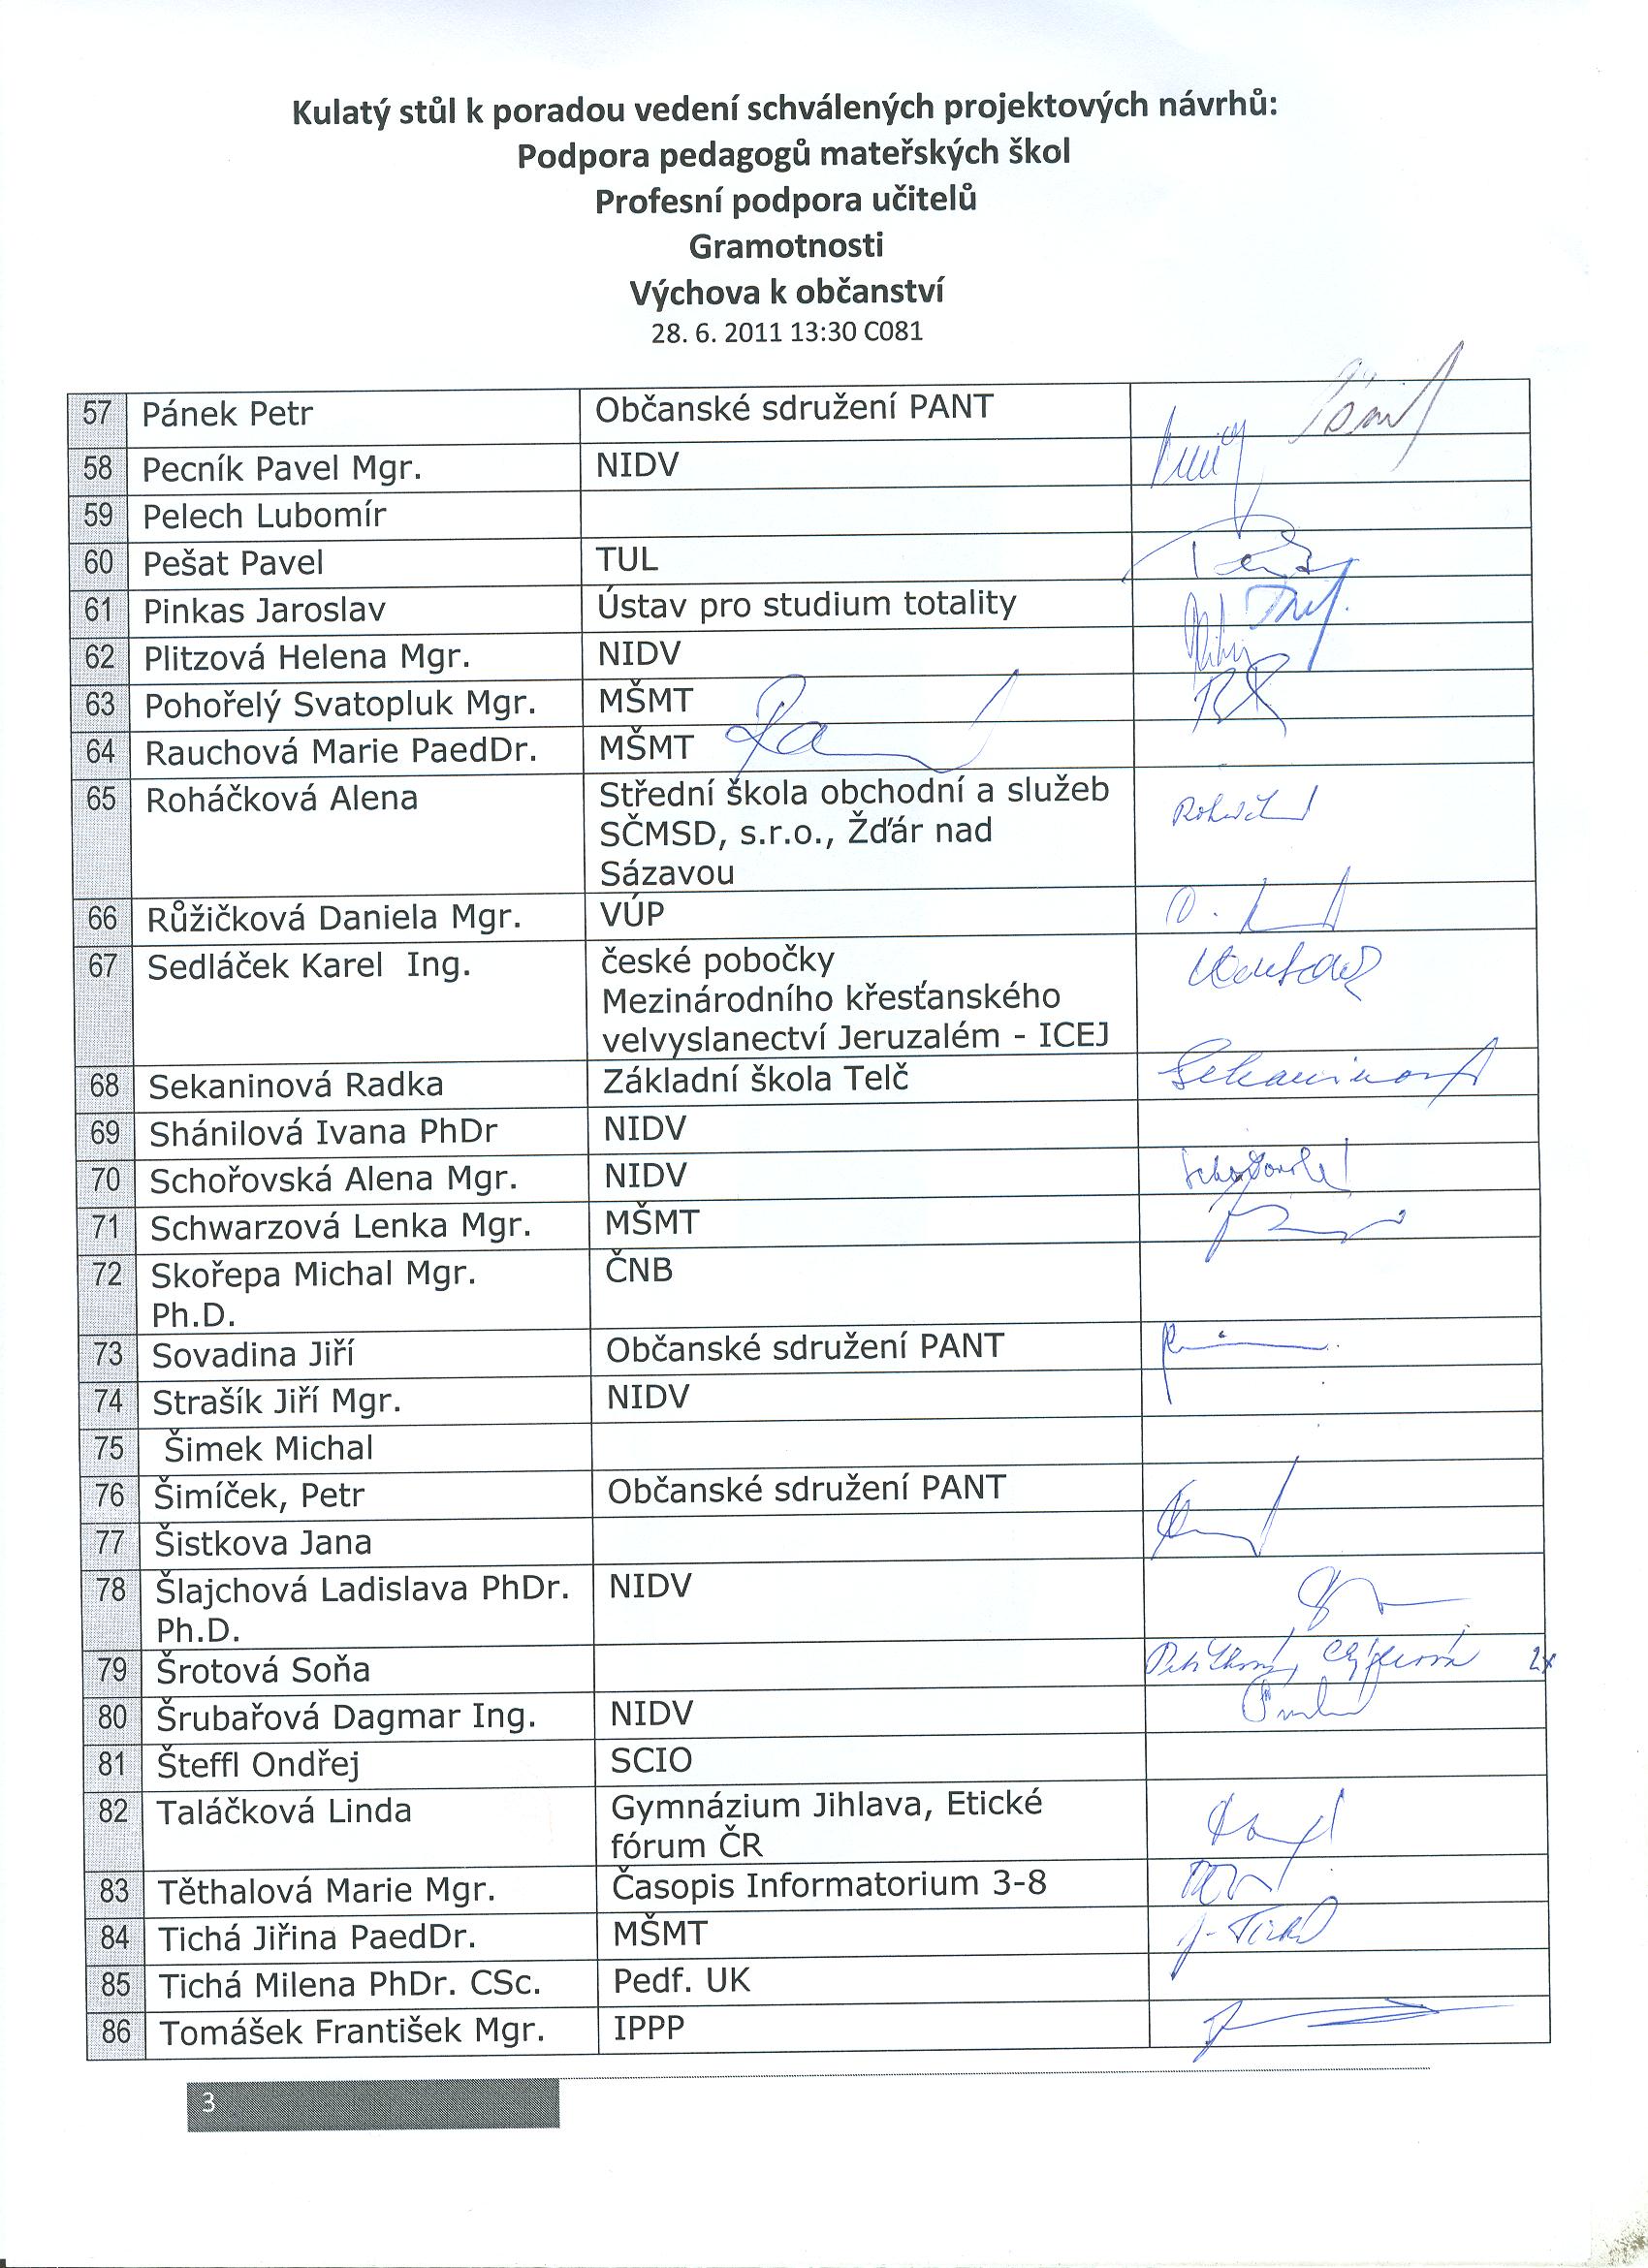 Kulatý stůl k poradou vedení schválených projektových návrhů:
Podpora pedagogů mateřských škol
Profesní podpora učitelů
Gramotnosti
Výchova k občanství
28. 6. 2011 13:30 C081
57 Pánek Petr Občanské sdružení PANT
58 Pecník Pavel Mgr. NIDV
59 Pelech Lubomír
60 Pešat Pavel TUL
61 Pinkas Jaroslav Ústav pro studium totality
62 Plitzová Helena Mgr. NIDV
63 Pohořelý Svatopluk Mgr. MŠMT
64 Rauchová Marie PaedDr. MŠMT
65 Roháčková Alena Střední škola obchodní a služeb
SČMSD, s.r.o., Žďár nad
Sázavou
66 Růžičková Daniela Mgr. VÚP
67 Sedláček Karel Ing. české pobočky
Mezinárodního křesťanského
velvyslanectví Jeruzalém - ICEJ
68 Sekaninová Radka Základní škola Telč Sekaninová
69 Shánilová Ivana PhDr NIDV
70 Schořovská Alena Mgr. NIDV
71 Schwarzová Lenka Mgr. MŠMT
72 Skořepa Michal Mgr. ČNB
Ph.D.
73 Sovadina Jiří Občanské sdružení PANT
74 Strašík Jiří Mgr. NIDV
75 Šimek Michal
76 Šimíček, Petr Občanské sdružení PANT
77 Šistkova Jana
78 Šlajchová Ladislava PhDr. NIDV
Ph.D.
79 Šrotová Soňa 2x
80 Šrubařová Dagmar Ing. NIDV
81 Šteffl Ondřej SCIO
82 Taláčková Linda Gymnázium Jihlava, Etické
fórum ČR
83 Těthalová Marie Mgr. Časopis Informatorium 3-8
84 Tichá Jiřina PaedDr. MŠMT J. Tichá
85 Tichá Milena PhDr. CSc. Pedf. UK
86 Tomášek František Mgr. IPPP
3